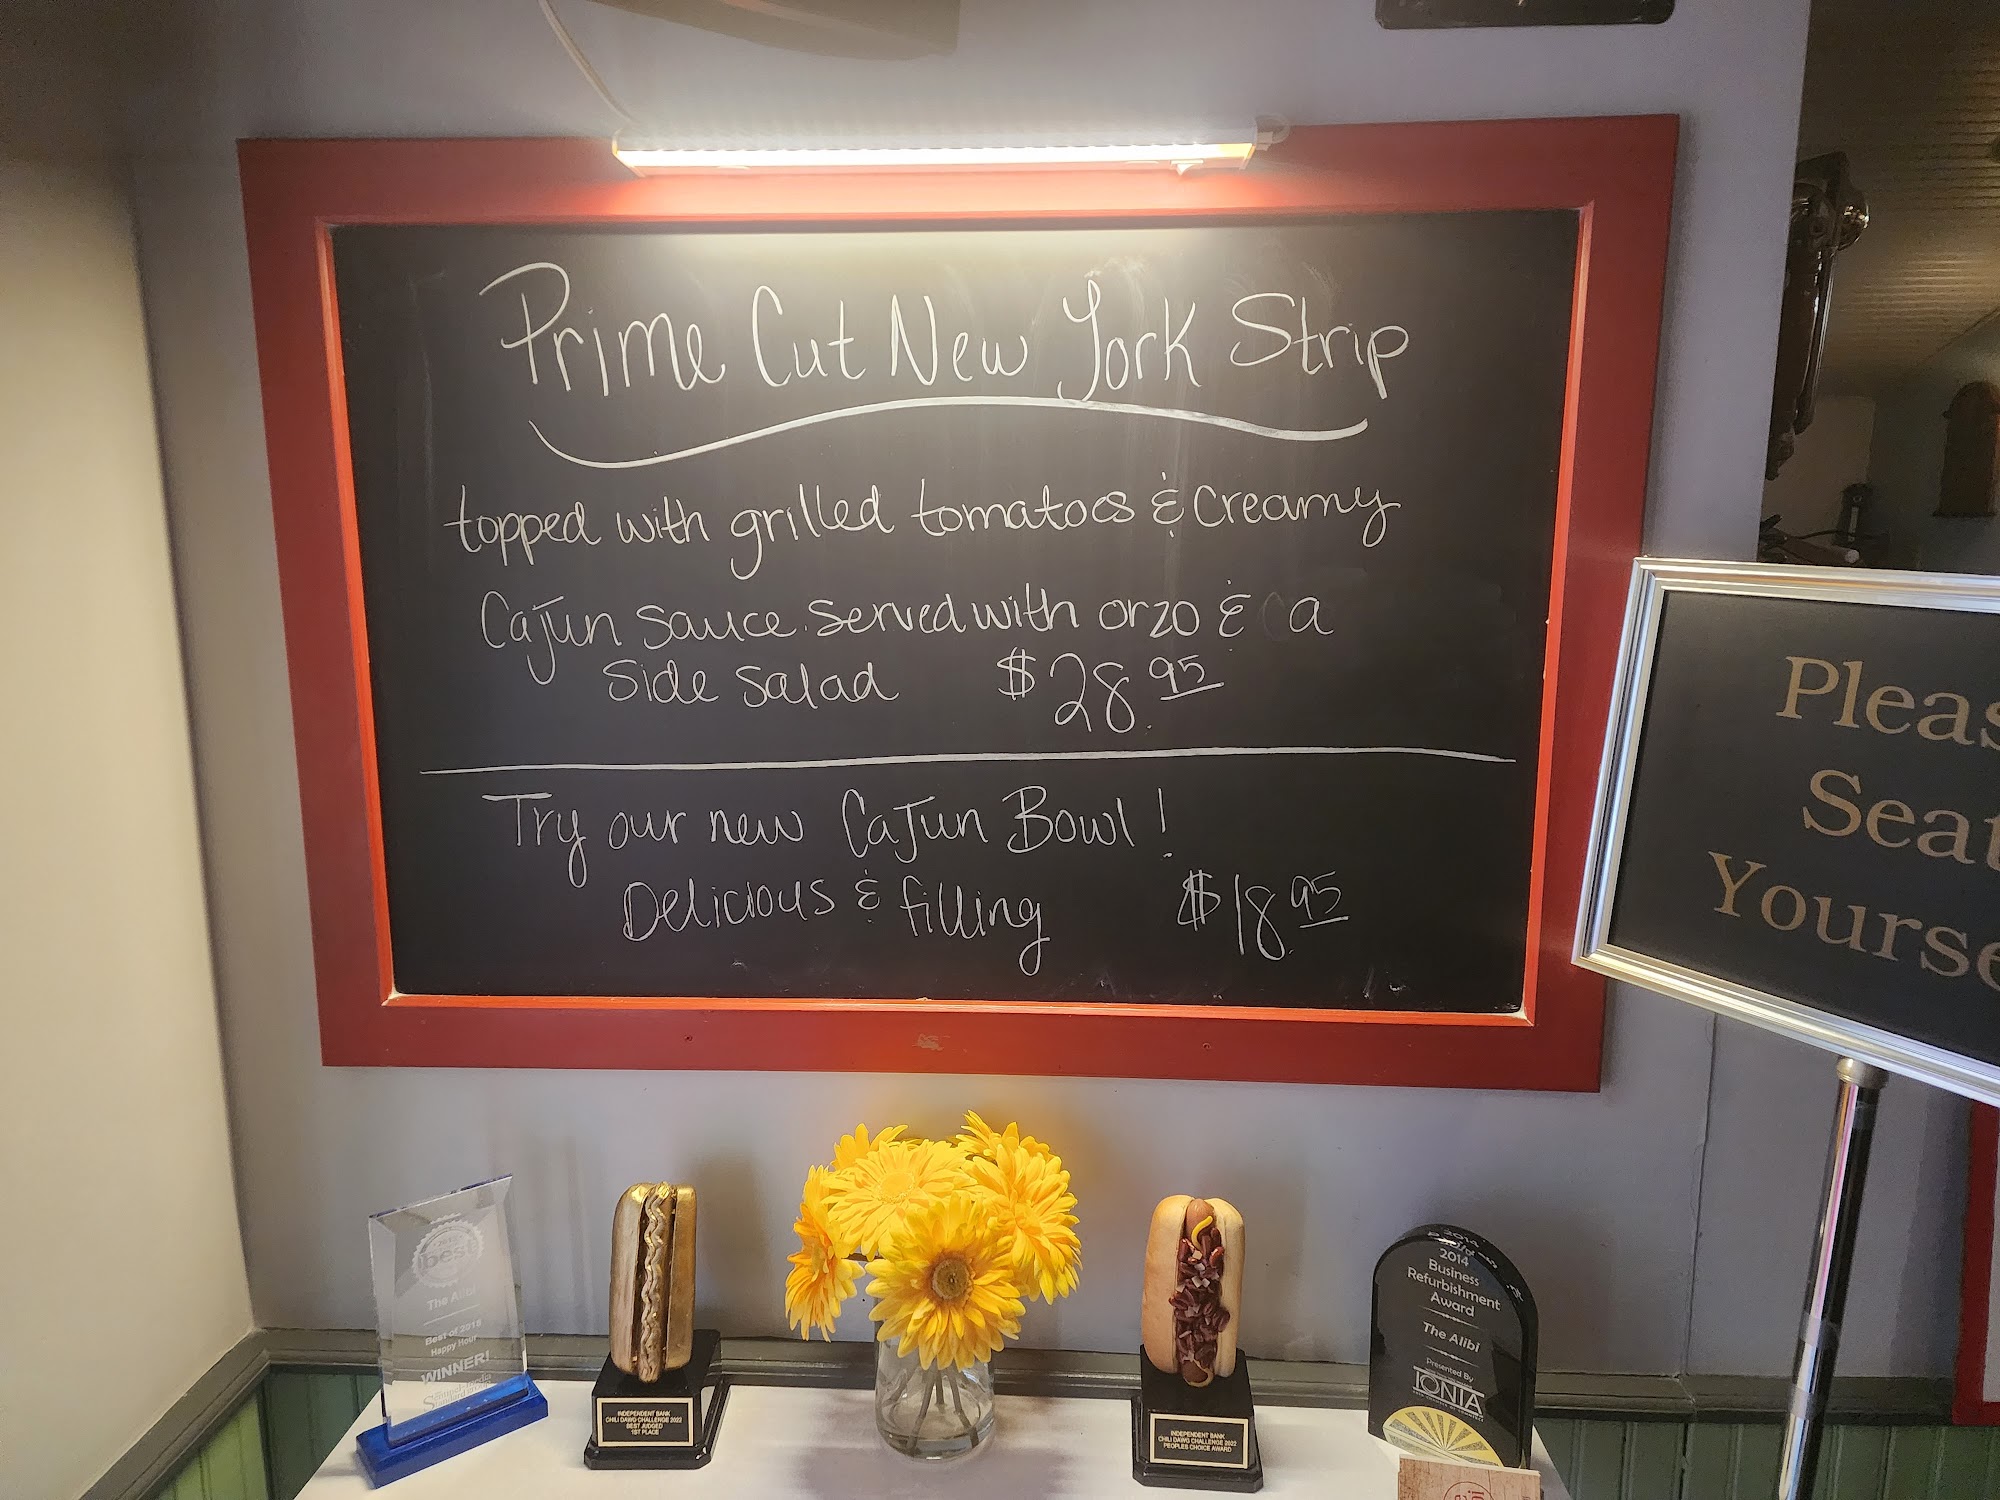 Prime Cut New York Strip
topped with grilled tomatoes & Creamy
Cajun sauce. Served with orzo & a
side salad $28.95
Try our new Cajun Bowl!
Delicious & filling $18.95
Pleas
Seat
Yourse
best
The Alibi
Best of 2018
Happy Hour
WINNER!
INDEPENDENT BANK
CHILI DAWG CHALLENGE 2022
BEST JUDGED
1ST PLACE
INDEPENDENT BANK
CHILI DAWG CHALLENGE 2022
PEOPLES CHOICE AWARD
2014
2014
Business
Refurbishment
Award
The Alibi
Presented By
IONIA